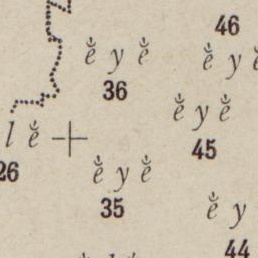 46
é̆ y é̆
é̆ y é̆
36
é̆ y é̆
l é̆
45
26
é̆ y é̆
35
é̆ y
44